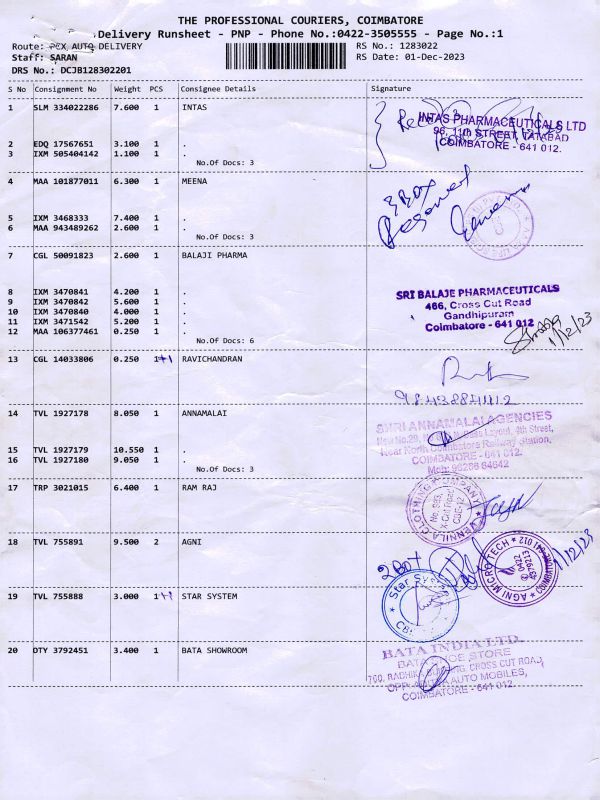 THE PROFESSIONAL COURIERS, COIMBATORE
Delivery Runsheet - PNP - Phone No.:0422-3505555 - Page No.:1
Route: PCX AUTO DELIVERY
RS No.: 1283022
Staff: SARAN
RS Date: 01-Dec-2023
DRS No.: DCJB128302201
S No Consignment No Weight PCS Consignee Details Signature
1 SLM 334022286 7.600 1 INTAS
INTAS PHARMACEUTICALS LTD
96, 11th STREET, TATABAD
COIMBATORE - 641 012.
2 EDQ 17567651 3.100 1 .
3 IXM 505404142 1.100 1 .
No.Of Docs: 3
4 MAA 101877011 6.300 1 MEENA
3 BOX
5 IXM 3468333 7.400 1 .
6 MAA 943489262 2.600 1 .
No.Of Docs: 3
7 CGL 50091823 2.600 1 BALAJI PHARMA
8 IXM 3470841 4.200 1 .
9 IXM 3470842 5.600 1 .
10 IXM 3470840 4.000 1 .
11 IXM 3471542 5.200 1 .
12 MAA 106377461 0.250 1 .
No.Of Docs: 6
SRI BALAJE PHARMACEUTICALS
466, Cross Cut Road
Gandhipuram
Coimbatore - 641 012
1/12/23
13 CGL 14033806 0.250 1+1 RAVICHANDRAN
14 TVL 1927178 8.050 1 ANNAMALAI
SHRI ANNAMALAI AGENCIES
Layout, 4th Street,
Near North Coimbatore Railway Station,
COIMBATORE - 641 012.
Mob: 96286 64642
15 TVL 1927179 10.550 1 .
16 TVL 1927180 9.050 1 .
No.Of Docs: 3
17 TRP 3021015 6.400 1 RAM RAJ
VENNILA CLOTHING COMPANY
No. 593,
X-Cut Road
CBE-12
18 TVL 755891 9.500 2 AGNI
2 BOX
AGNI MICRO TECH
COIMBATORE-641 012
0422
4379213
1/12/23
19 TVL 755888 3.000 1+1 STAR SYSTEM
Star System
20 DTY 3792451 3.400 1 BATA SHOWROOM
BATA INDIA LTD.
BATA SHOE STORE
700, RADHIKA BUILDING, CROSS CUT ROAD,
AUTO MOBILES,
COIMBATORE - 641 012.